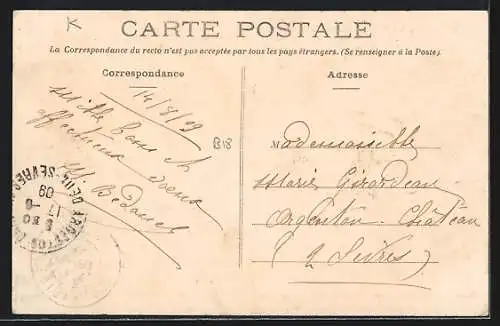 K
CARTE POSTALE
La Correspondance du recto n'est pas acceptée par tous les pays étrangers. (Se renseigner à la Poste).
Correspondance
Adresse
14/8/09
Mille bons et
affectueux
M.
B18
Mademoiselle
Marie Girardeau
Argenton-Château
(2 Sèvres)
DEUX-SEVRES
09
17-8